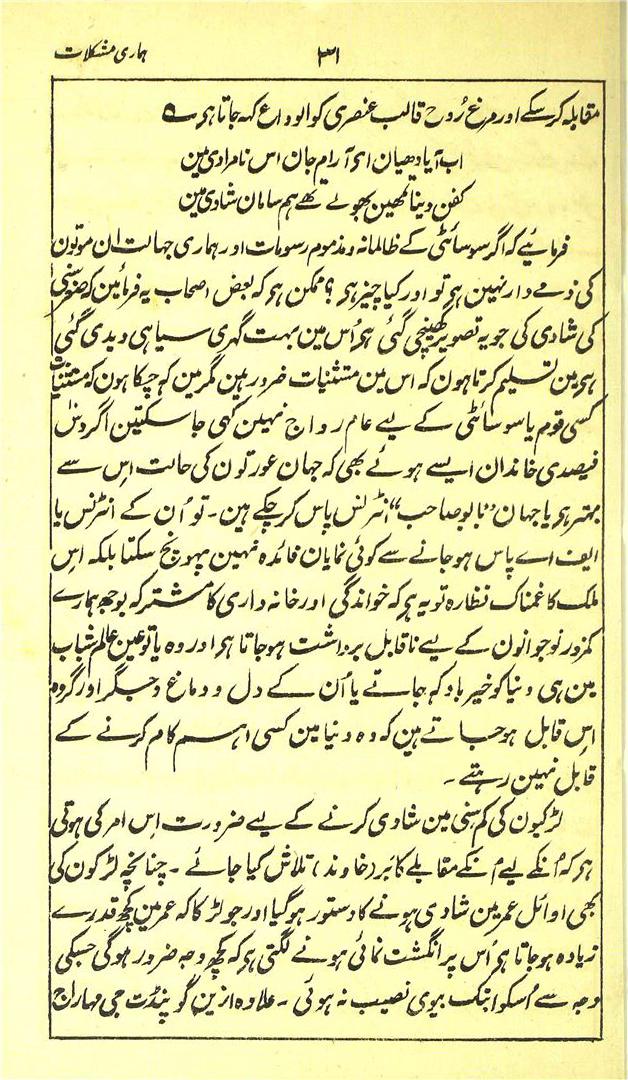 ہماری مشکلات ۳۱
مقابلہ کر سکے اور مرغِ رُوح قالب عنصری کو الوداع کہہ جاتا ہر ے
اب آیا دھیان ای آرام جان اس نامرادی مین
کفن دینا تمھین بھولے تھے ہم سامان شادی مین
فرمائیے کہ اگر سوسائٹی کے ظالمانہ و مذموم رسومات اور ہماری جہالت ان موتون
کی ذمے دار نہین ہر تو اور کیا چیز ہر ؟ ممکن ہر کہ بعض اصحاب یہ فرمائین کہ صغر سنی
کی شادی کی جو یہ تصویر کھینچی گئی ہر اُس مین بہت گہری سیاہی دیدی گئی
ہر مین تسلیم کرتا ہون کہ اس مین مستثنیات ضرور ہین مگر مین کہ چکا ہون کہ مستثنیات
کسی قوم یا سوسائٹی کے لیے عام رواج نہین کہی جا سکتین اگر دس
فیصدی خاندان ایسے ہوئے بھی کہ جہان عورتون کی حالت اس سے
بہتر ہر یا جہان ”بابو صاحب“ انٹرنس پاس کر چکے ہین ۔ تو اُن کے انٹرنس یا
ایف اے پاس ہو جانے سے کوئی نمایان فائدہ نہین پہونچ سکتا بلکہ اس
ملک کا غمناک نظارہ تو یہ ہر کہ خواندگی اور خانہ داری کا مشترکہ بوجھ ہمارے
کمزور نوجوانون کے لیے ناقابل برداشت ہو جاتا ہر اور وہ یا تو عین عالم شباب
مین ہی دنیا کو خیر باد کہہ جاتے یا اُن کے دل و دماغ و جگر اور گردہ
اس قابل ہو جاتے ہین کہ وہ دنیا مین کسی اہم کام کرنے کے
قابل نہین رہتے ۔
لڑکیون کی کم سنی مین شادی کرنے کے لیے ضرورت اس امر کی ہوتی
ہر کہ اُنکے لیے اُنکے مقابلے کا بَر (خاوند) تلاش کیا جائے ۔ چنانچہ لڑکون کی
بھی اوائل عمر مین شادی ہونے کا دستور ہو گیا اور جو لڑکا کہ عمر مین کچھ قدرے
زیادہ ہو جاتا ہر اُس پر انگشت نمائی ہونے لگتی ہر کہ کچھ وجہ ضرور ہو گی جسکی
وجہ سے اُسکو ابتک بیوی نصیب نہ ہوئی ۔ علاوہ ازین گو پنڈت جی مہاراج